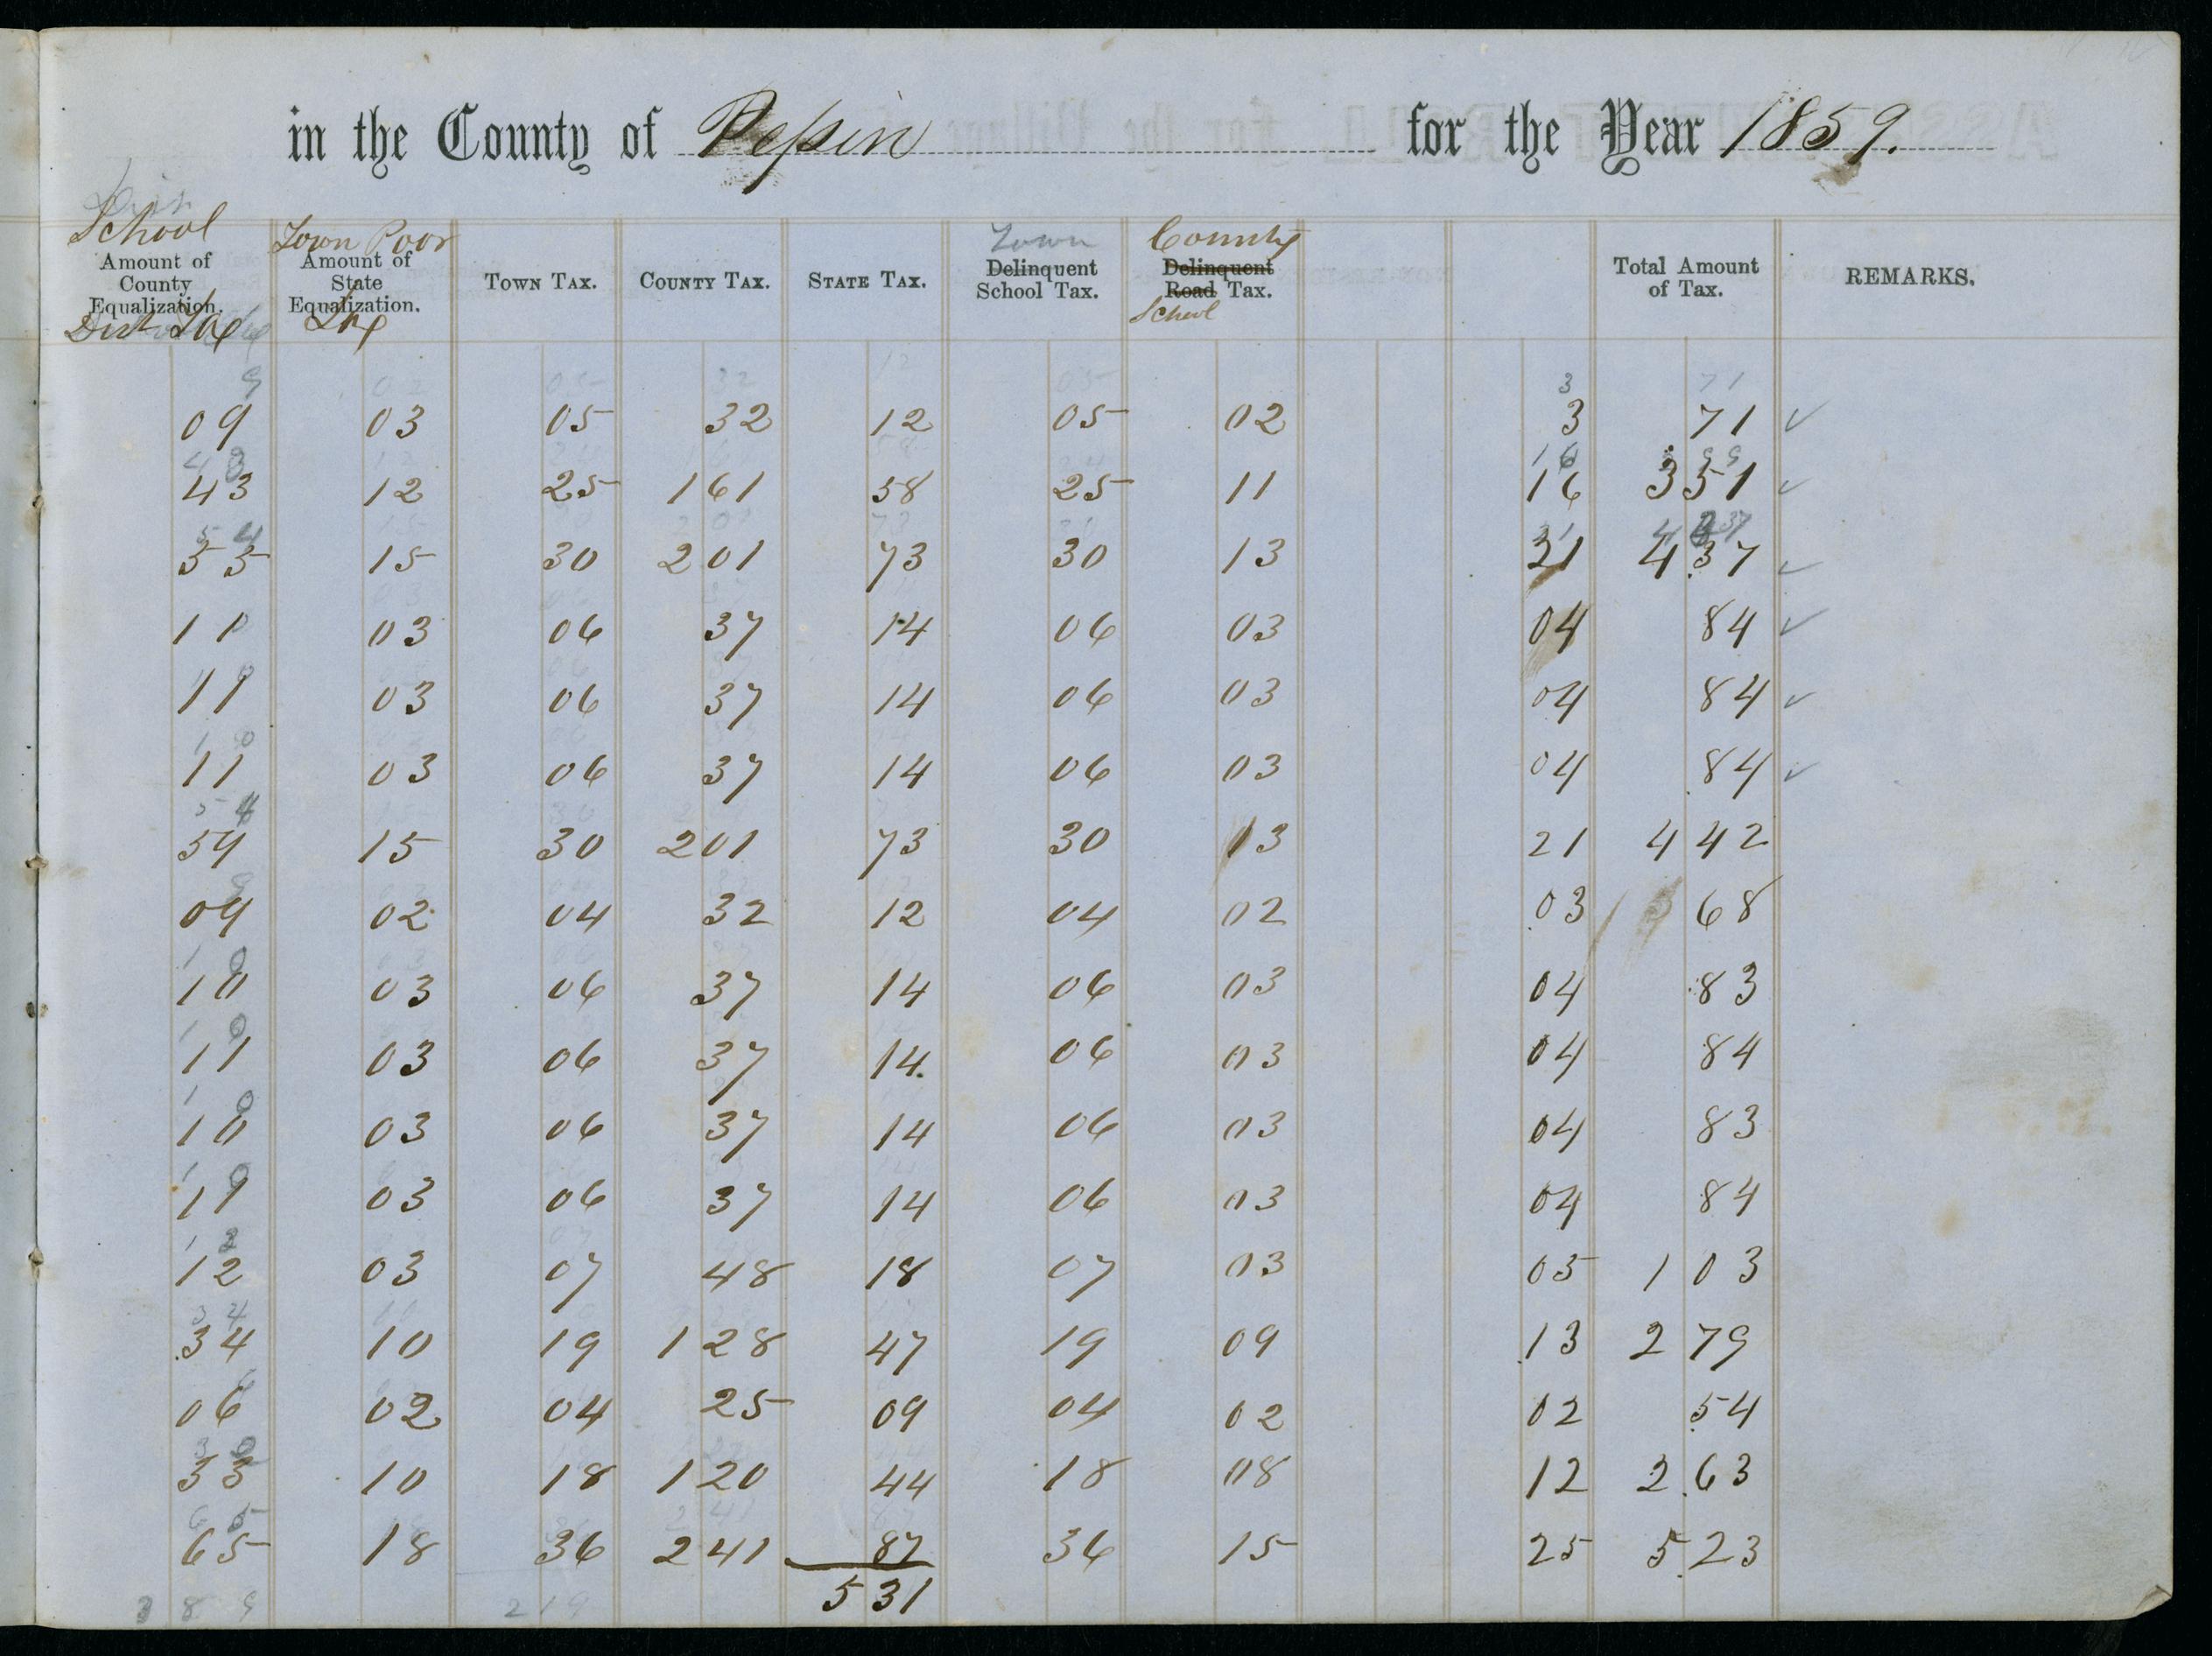 in the County of Pepin for the Year 1859.
School Town Poor Town County
Amount of County Equalization. Amount of State Equalization. Town Tax. County Tax. State Tax. Delinquent School Tax. Delinquent Road Tax. Total Amount of Tax. REMARKS.
Dist Tax Tax School
09 03 05 32 12 05 02 3 71 ✓
43 12 25 1 61 58 25 11 16 3 51 ✓
55 15 30 2 01 73 30 13 21 4 37 ✓
11 03 06 37 14 06 03 04 84 ✓
11 03 06 37 14 06 03 04 84 ✓
11 03 06 37 14 06 03 04 84 ✓
59 15 30 2 01 73 30 13 21 4 42
09 02 04 32 12 04 02 03 68
10 03 06 37 14 06 03 04 83
11 03 06 37 14 06 03 04 84
10 03 06 37 14 06 03 04 83
11 03 06 37 14 06 03 04 84
12 03 07 48 18 07 03 05 1 03
34 10 19 1 28 47 19 09 13 2 79
06 02 04 25 09 04 02 02 54
33 10 18 1 20 44 18 08 12 2 63
65 18 36 2 41 87 36 15 25 5 23
3 89 2 19 5 31